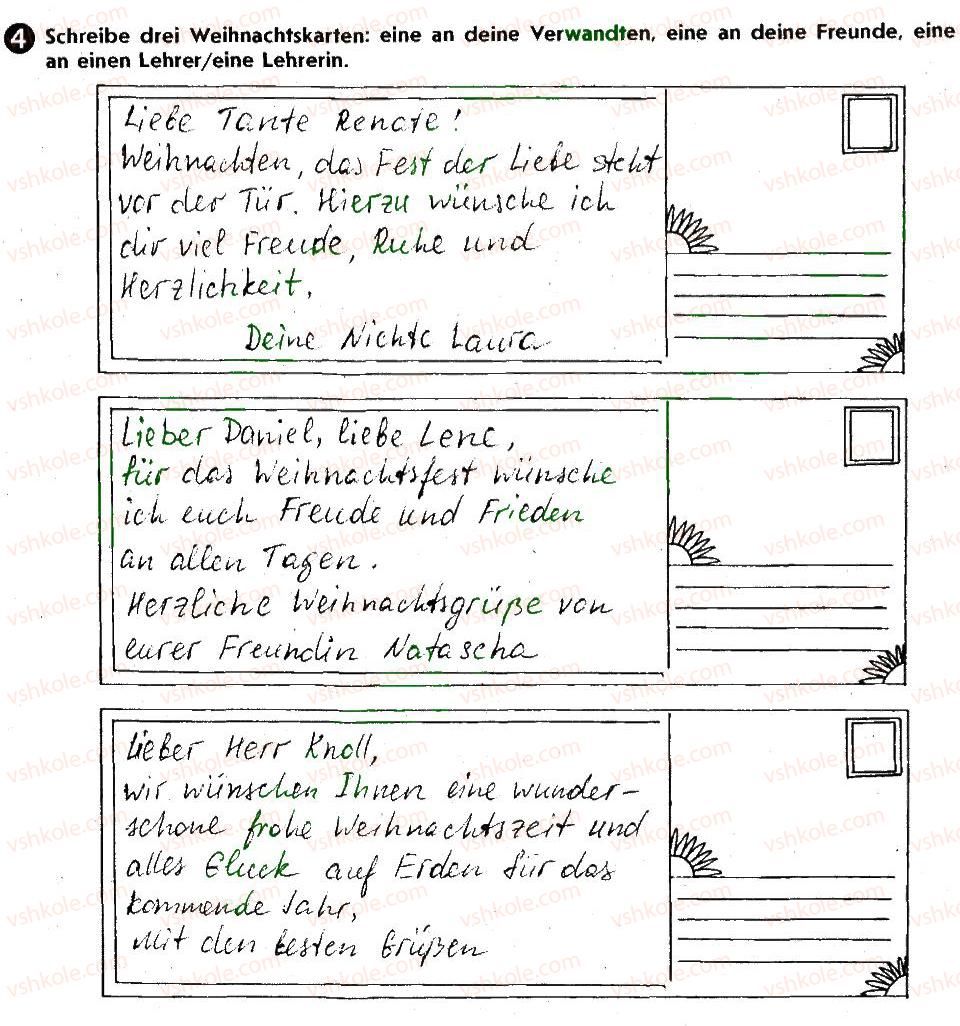 4 Schreibe drei Weihnachtskarten: eine an deine Verwandten, eine an deine Freunde, eine
an einen Lehrer/eine Lehrerin.
Liebe Tante Renate!
Weihnachten, das Fest der Liebe steht
vor der Tür. Hierzu wünsche ich
dir viel Freude, Ruhe und
Herzlichkeit.
Deine Nichte Laura
Lieber Daniel, liebe Lene,
für das Weihnachtsfest wünsche
ich euch Freude und Frieden
an allen Tagen.
Herzliche Weihnachtsgrüße von
eurer Freundin Natascha
Lieber Herr Knoll,
wir wünschen Ihnen eine wunder-
schone frohe Weihnachtszeit und
alles Gluck auf Erden für das
kommende Jahr,
Mit den besten Grüßen
vshkole.com